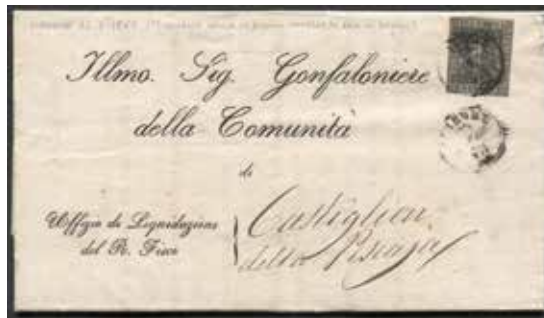 Illmo. Sig. Gonfaloniere
della Comunità
di
Uffizio di Liquidazione
del R. Fisco
Castiglion
della Pescaja